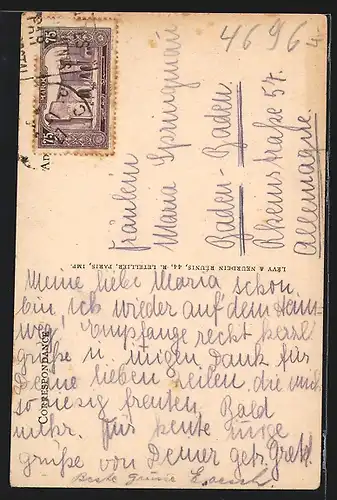 46964
75 MAROC 75
CORRESPONDANCE
LÉVY & NEURDEIN RÉUNIS, 44, R. LETELLIER, PARIS, IMP.
Fräulein
Maria Springmann
Baden-Baden
Rheinstraße 57.
Allemagne.
Meine liebe Maria schon
bin ich wieder auf dem Heim
weg. Empfange recht herzl.
grüße u. innigen Dank für
Deine lieben Zeilen, die mich
so riesig freuten. Bald
mehr. Für heute innige
grüße von Deiner getr. Gretl.
Beste Grüsse